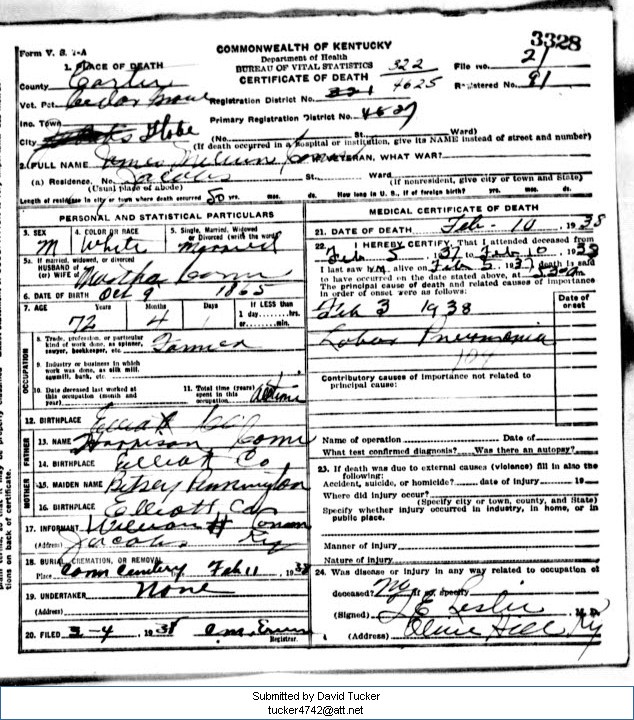 3328
Form V. S. 1-A
COMMONWEALTH OF KENTUCKY
Department of Health
BUREAU OF VITAL STATISTICS
CERTIFICATE OF DEATH
322
4625
File No. 21
Registered No. 91
1. PLACE OF DEATH
County Carter
Vot. Pct. Cedar Grove
Registration District No. 321
Inc. Town
Primary Registration District No. 4527
City Globe (No. St. Ward)
(If death occurred in a hospital or institution, give its NAME instead of street and number)
2. FULL NAME James William Conn VETERAN, WHAT WAR?
(a) Residence. No. Jacobs St. Ward
(Usual place of abode) (If nonresident, give city or town and State)
Length of residence in city or town where death occurred 50 yrs. mos. ds. How long in U. S., if of foreign birth? yrs. mos. ds.
PERSONAL AND STATISTICAL PARTICULARS
3. SEX M
4. COLOR OR RACE White
5. Single, Married, Widowed or Divorced (write the word) Married
5a. If married, widowed, or divorced
HUSBAND of
(or) WIFE of Martha Conn
6. DATE OF BIRTH Oct 9 1865
7. AGE Years Months Days If LESS than
72 4 1
1 day, hrs.
or min.
OCCUPATION
8. Trade, profession, or particular kind of work done, as spinner, sawyer, bookkeeper, etc. Farmer
9. Industry or business in which work was done, as silk mill, sawmill, bank, etc.
10. Date deceased last worked at this occupation (month and year)
11. Total time (years) spent in this occupation
12. BIRTHPLACE Elliott Co
FATHER
13. NAME Harrison Conn
14. BIRTHPLACE Elliott Co
MOTHER
15. MAIDEN NAME Betsey Pennington
16. BIRTHPLACE Elliott Co
17. INFORMANT William H Conn
(Address) Jacobs Ky
18. BURIAL, CREMATION, OR REMOVAL
Place Conn Cemetery Feb 11, 1938
19. UNDERTAKER None
(Address)
20. FILED 3-4 1938
Registrar.
MEDICAL CERTIFICATE OF DEATH
21. DATE OF DEATH Feb - 10, 1938
22. I HEREBY CERTIFY, That I attended deceased from
Feb 5 37 to Feb 10 1938
I last saw him alive on Feb 5, 1937, death is said
to have occurred on the date stated above, at
The principal cause of death and related causes of importance
in order of onset were as follows:
Date of onset
Feb 3 1938
Lobar Pneumonia
108
Contributory causes of importance not related to
principal cause:
Name of operation Date of
What test confirmed diagnosis? Was there an autopsy?
23. If death was due to external causes (violence) fill in also the
following:
Accident, suicide, or homicide? date of injury 19
Where did injury occur?
(Specify city or town, county, and State)
Specify whether injury occurred in industry, in home, or in
public place.
Manner of injury
Nature of injury
24. Was disease or injury in any way related to occupation of
deceased? No If so, specify
(Signed) Leslie M. D.
(Address) Olive Hill Ky
tions on back of certificate.
Submitted by David Tucker
tucker4742@att.net